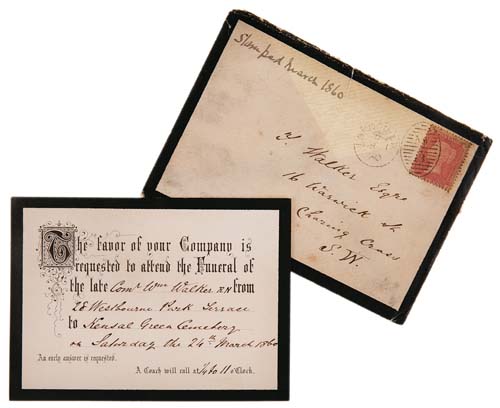 March 1860
J. Walker Esqre
16 Warwick St
Charing Cross
S.W.
The favor of your Company is
requested to attend the Funeral of
the late Comr Wm Walker RN from
28 Westbourne Park Terrace
to Kensal Green Cemetery
on Saturday the 24th March 1860
An early answer is requested.
A Coach will call at 1/4 to 11 o'Clock.